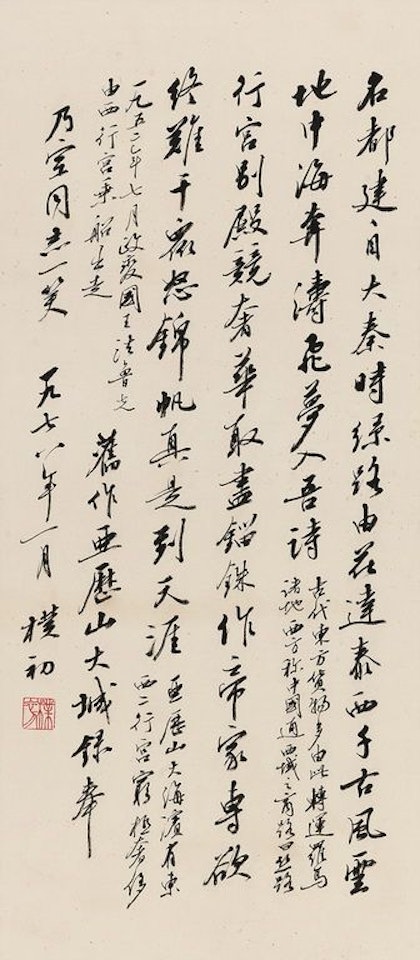 名都建自大秦時絲路由茲達泰西千古風雲
地中海奔濤飛夢入吾詩
古代東方貨物多由此轉運羅馬
諸地西方稱中國通西域之商路曰絲路
行宮別殿競奢華取盡錙銖作帝家專欲
終難干衆怒錦帆真是到天涯
亞歷山大海濱有東
西二行宮窮極奢侈
一九五二年七月政變國王法魯克
由西行宮乘船出走
舊作亞歷山大城錄奉
乃同志一笑 一九七八年一月 樸初
樸初